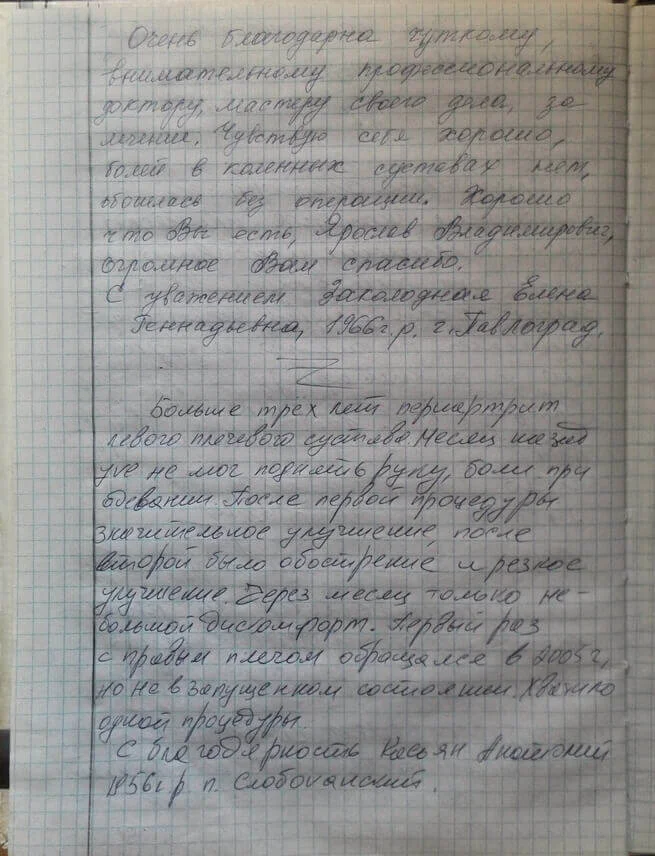 Очень благодарна чуткому,
внимательному профессиональному
доктору, мастеру своего дела, за
лечение. Чувствую себя хорошо,
болей в коленных суставах нет,
обошлась без операции. Хорошо
что Вы есть, Ярослав Владимирович,
огромное Вам спасибо.
С уважением Заколодная Елена
Геннадьевна, 1966г.р. г. Павлоград.
Больше трёх лет периартрит
левого плечевого сустава. Месяц назад
уже не мог поднять руку, боли при
одевании. После первой процедуры
значительное улучшение, после
второй было обострение и резкое
улучшение. Через месяц только не-
большой дискомфорт. Первый раз
с правым плечом обращался в 2005г,
но не в запущенном состоянии. Хватило
одной процедуры.
С благодарность Касьян Анатолий
1956г.р п. Слобожанский.